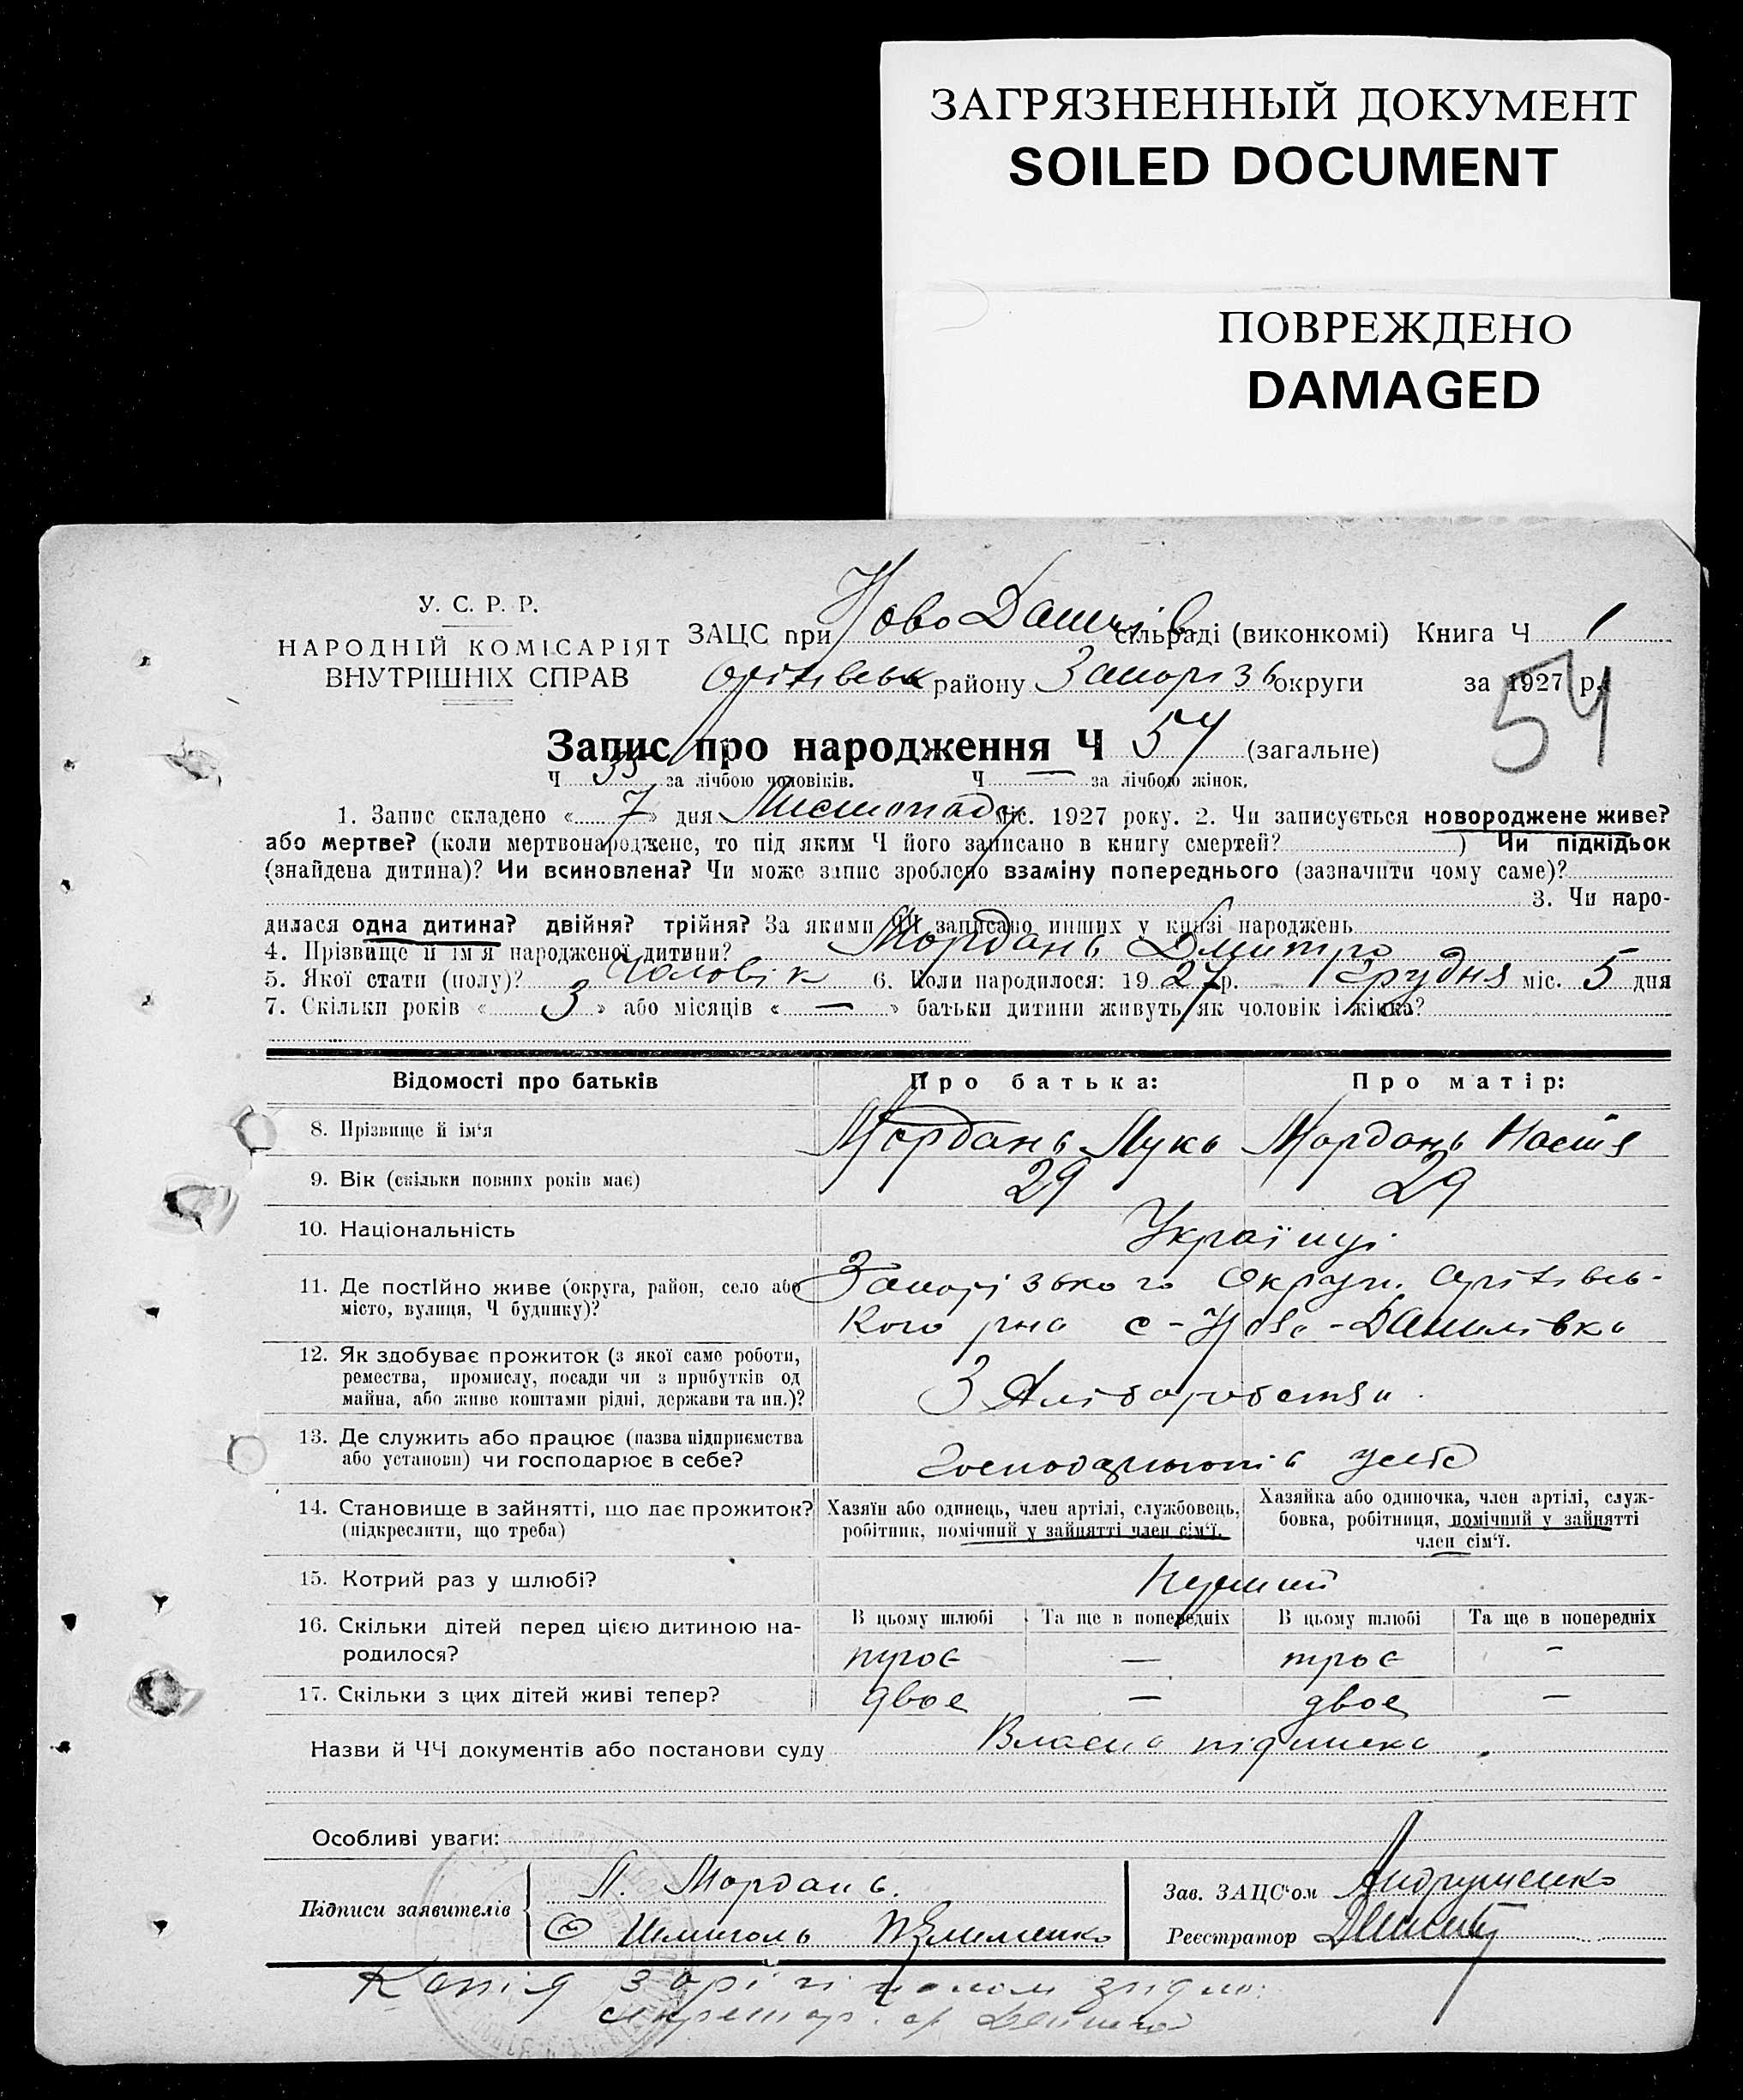 ЗАГРЯЗНЕННЫЙ ДОКУМЕНТ
SOILED DOCUMENT
ПОВРЕЖДЕНО
DAMAGED
У. С. Р. Р.
НАРОДНІЙ КОМІСАРІЯТ
ВНУТРІШНІХ СПРАВ
ЗАЦС при Ново сільраді (виконкомі) Книга Ч 1
району Запорізь округи за 1927 р.
54
Запис про народження Ч 54 (загальне)
Ч 35 за лічбою чоловіків. Ч — за лічбою жінок.
1. Запис складено « 7 » дня Листопада міс. 1927 року. 2. Чи записується новороджене живе?
або мертве? (коли мертвонароджене, то під яким Ч його записано в книгу смертей? ) Чи підкідьок
(знайдена дитина)? Чи всиновлена? Чи може запис зроблено взаміну попереднього (зазначити чому саме)?
3. Чи наро-
дилася одна дитина? двійня? трійня? За якими ЧЧ записано инших у книзі народжень
4. Прізвище й ім'я народженої дитини? Мордань Дмитро
5. Якої стати (полу)? Чоловік 6. Коли народилося: 1927 р. Грудня міс. 5 дня
7. Скільки років « 3 » або місяців « — » батьки дитини живуть як чоловік і жінка?
Відомості про батьків Про батька: Про матір:
8. Прізвище й ім'я Мордань Лука Мордань Настя
9. Вік (скільки повних років має) 29 29
10. Національність Українці
11. Де постійно живе (округа, район, село або Запорізького Округи
місто, вулиця, Ч будинку)? кого р-на с-Ново-Данилівка
12. Як здобуває прожиток (з якої саме роботи,
ремества, промислу, посади чи з прибутків од
майна, або живе коштами рідні, держави та ин.)? З Хліборобства
13. Де служить або працює (назва підприємства
або установи) чи господарює в себе?
14. Становище в зайнятті, що дає прожиток? Хазяїн або одинець, член артілі, службовець, Хазяйка або одиночка, член артілі, служ-
(підкреслити, що треба) робітник, помічний у зайнятті член сім'ї. бовка, робітниця, помічний у зайнятті
член сім'ї.
15. Котрий раз у шлюбі? Перший
16. Скільки дітей перед цією дитиною на- В цьому шлюбі Та ще в попередніх В цьому шлюбі Та ще в попередніх
родилося? троє — троє —
17. Скільки з цих дітей живі тепер? двоє — двоє —
Назви й ЧЧ документів або постанови суду Власна підписка
Особливі уваги:
Підписи заявителів Л. Мордань.
Зав. ЗАЦС'ом Андрущенко
Реєстратор
Копія з орігіналом згідно:
секретар с/